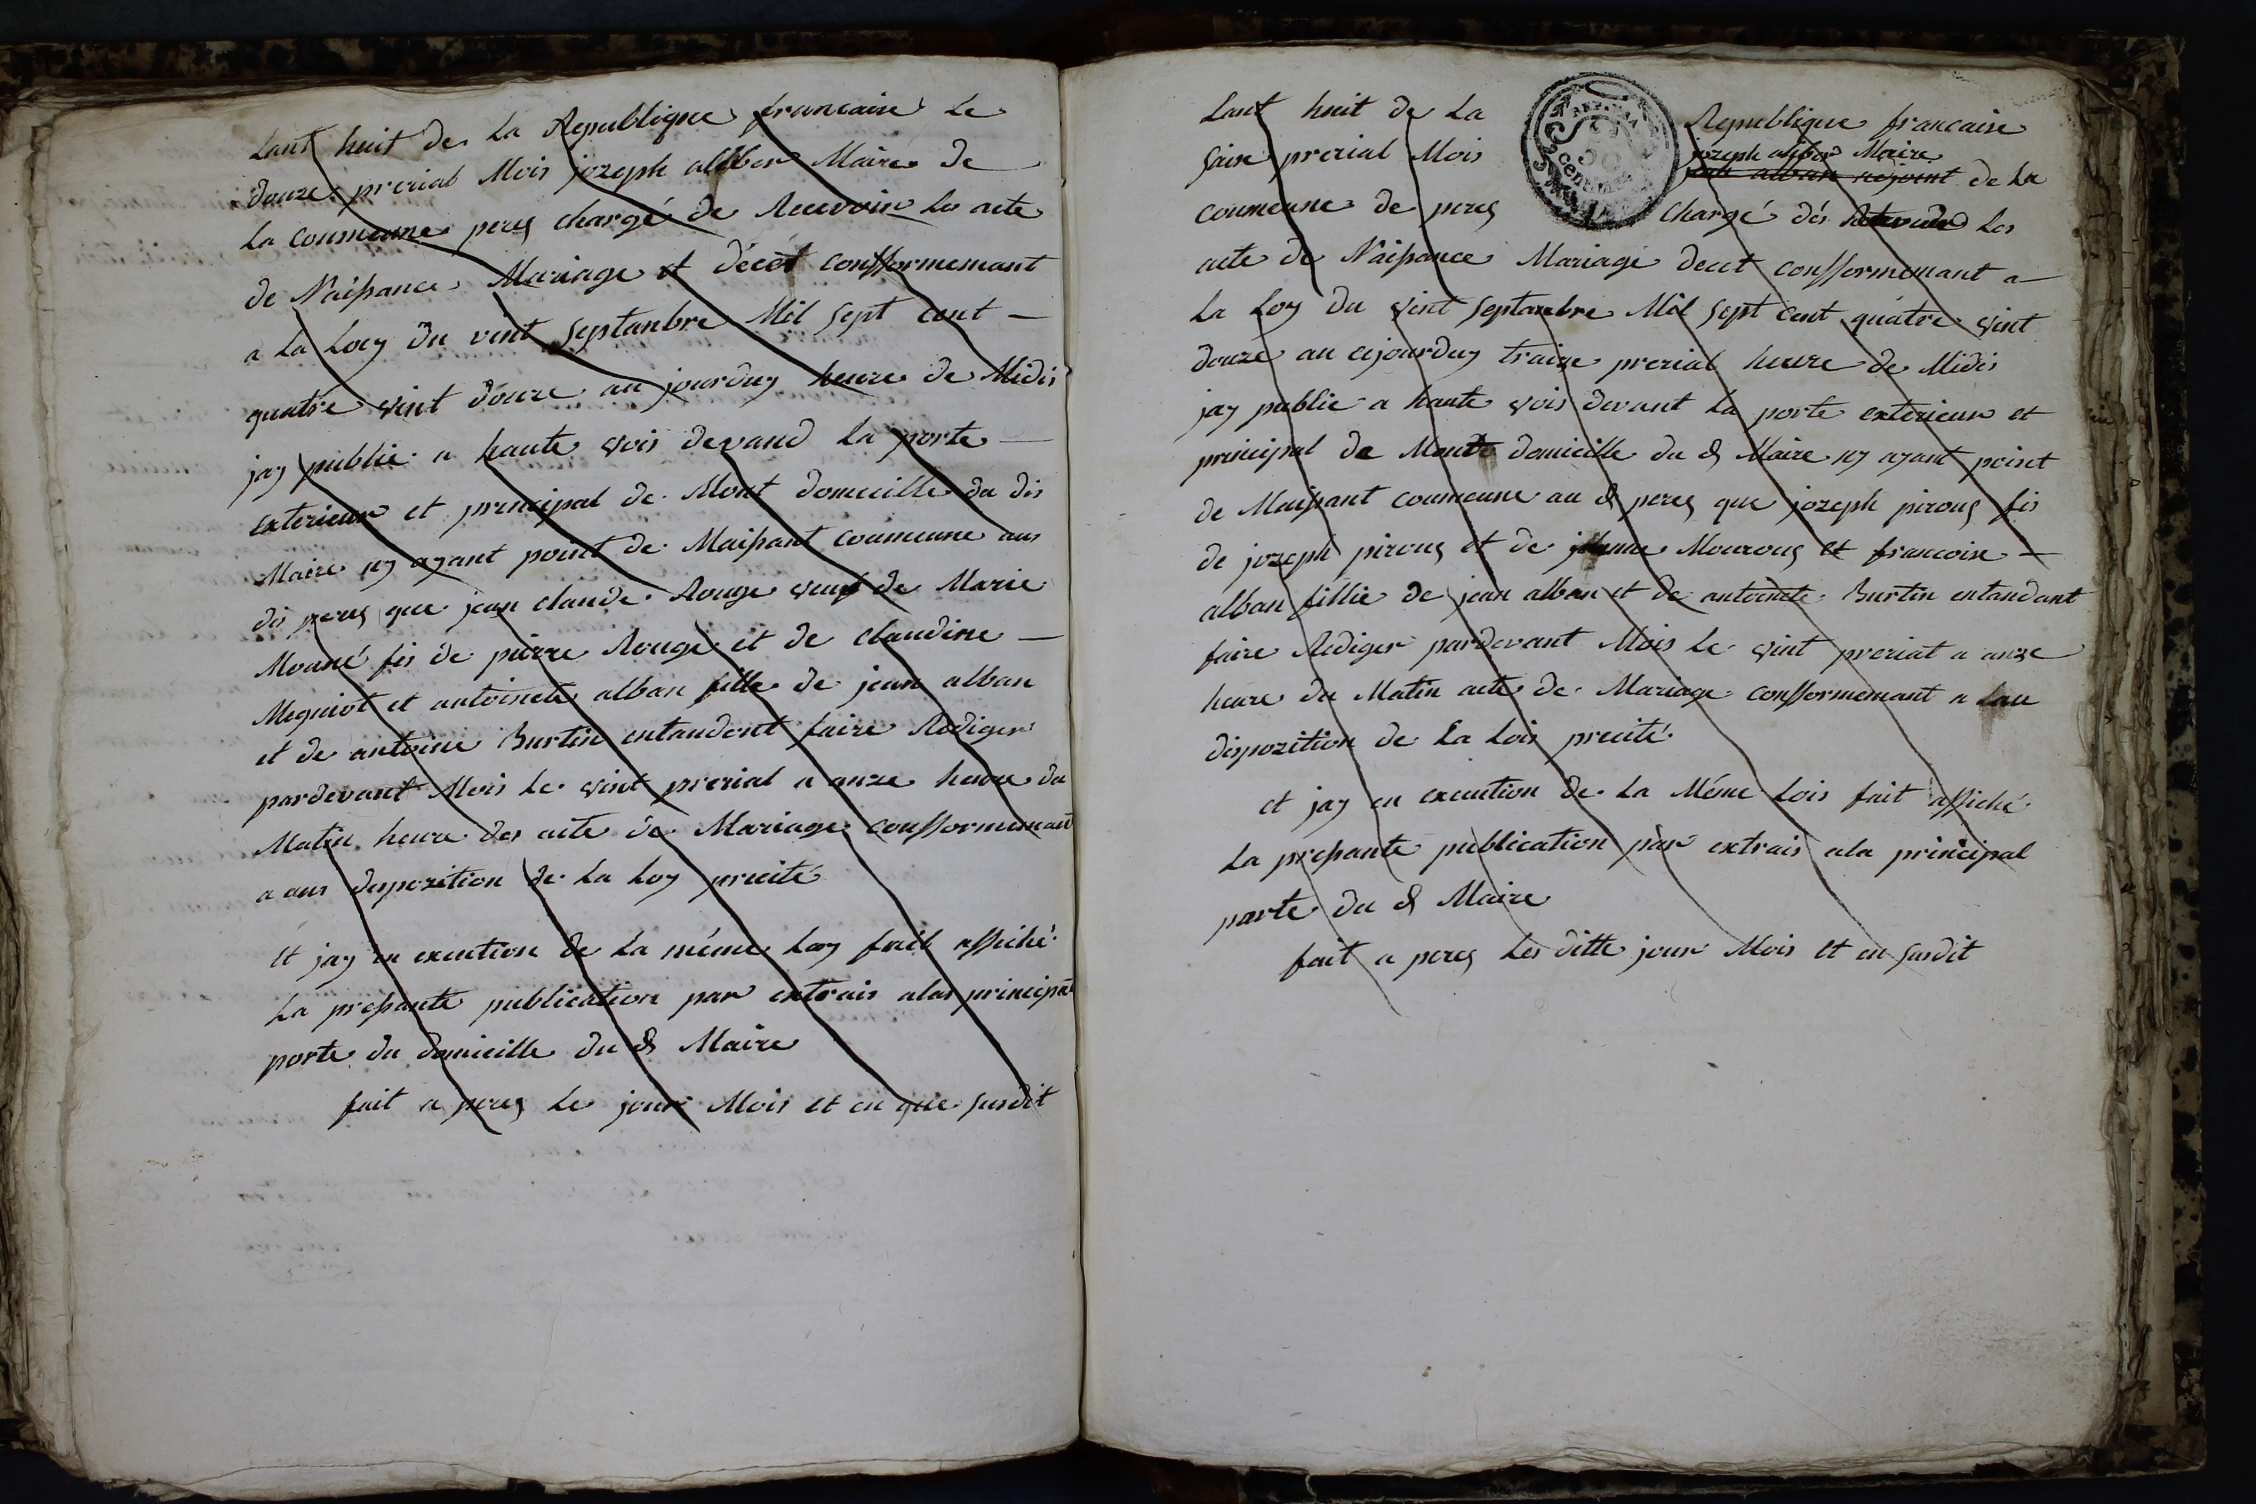 Lant huit de La Republique francaise Le
douze prerial Mois jozeph aliber Maire de
La coumeune perez chargé de Recevoir les acte
de Naissance Mariage et décet confformemant
a La Loey du vint septanbre Mil sept cent
quatre vint douze au jourduy heure de Midis
jay publie a haute vois devand la porte
exterieur et principal de Mont domicille du dis
Maire ny ayant point de Maissant coumeune aus
dis perez que jean claude Rouge veuf de Marie
Mouné fis de pierre Rouge et de claudine
Megniot et antoinete alban fille de jean alban
et de antoine Burtin entandent faire Rediger
pardevant Mois le vint prerial a onze heure du
Matin heure des acte de Mariage confformemant
a aus disposition de La Loy precité
Et jay en execution de La méme Loy fait affiché
La pressante publication par extrais a las principal
porte du domicille du d Maire
fait a perez Le jour Mois et en que susdit
Lant huit de La Republique francaise
saise prerial Mois jozeph aliber Maire
jean alban adjoint de La
coumeune de perez Chargé dés Les
acte de Naissance Mariage decet confformemant a
La Loy du vint septanbre Mil sept cent quatre vint
douze au ajourduy traize prerial heure de Midis
jay publie a haute vois devant la porte exterieur et
principal de Mont domicille du d Maire ny ayant point
de Maissant coumeune au d perez que jozeph pirouz fis
de jozeph pirouz et de Mourouz et francoise
alban fillie de jean alban et de antoinete Burtin entandant
faire Rediger pardevant Mois Le vint preriat a onze
heure du Matin acte de Mariage confformemant a Lau
dispozition de La Lois precité
et jay en execution de La Méme Lois fait affiché
La pressante publication par extrais a la principal
porte du d Maire
fait a perez Les ditte jour Mois et en susdit
CENTIMES